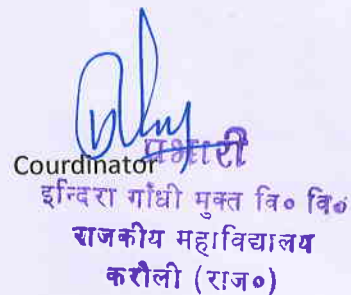 Courdinator
प्रभारी
इन्दिरा गाँधी मुक्त वि० वि०
राजकीय महाविद्यालय
करौली (राज०)